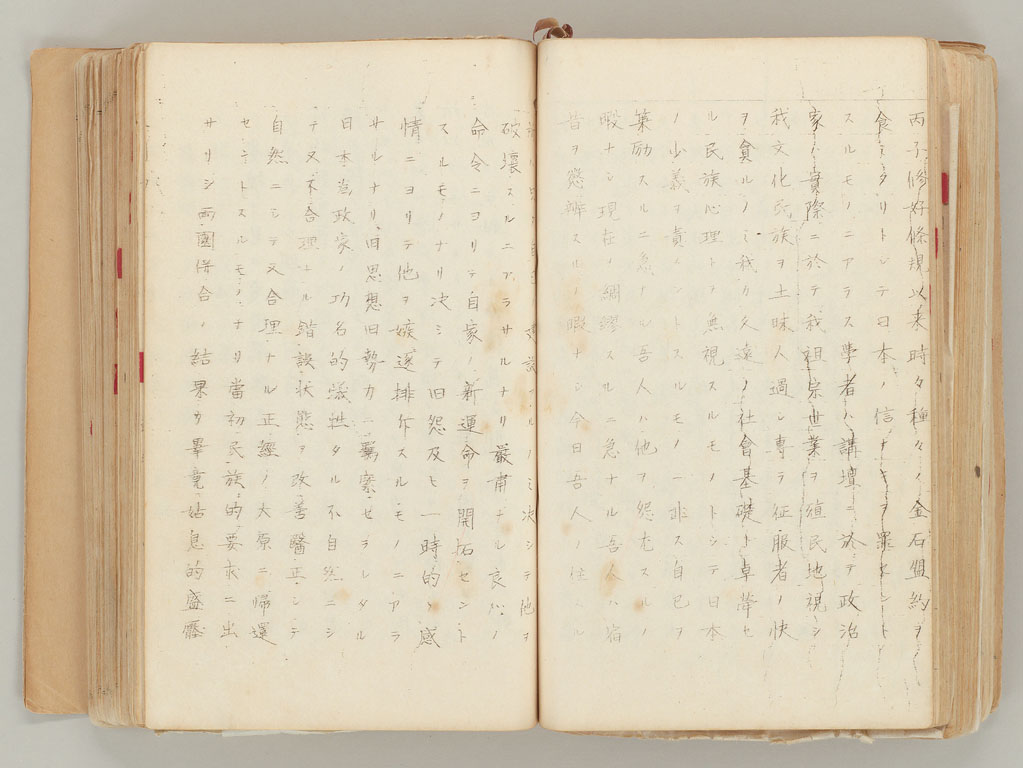 丙子修好條規以来時々種々ノ金石盟約ヲ
食ミタリトシテ日本ノ信ナキヲ罪セント
スルモノニアラス學者ハ講壇ニ於テ政治
家ハ實際ニ於テ我祖宗世業ヲ殖民地視シ
我文化民族ヲ土昧人遇シ専ラ征服者ノ快
ヲ貪ルノミ我カ久遠ノ社會基礎ト卓犖セ
ル民族心理トヲ無視スルモノトシテ日本
ノ少義ヲ責メントスルモノ一非ス自己ヲ
策励スルニ急ナル吾人ハ他ヲ怨尤スルノ
暇ナシ現在ヲ綢繆スルニ急ナル吾人ハ宿
昔ヲ懲辨スルノ暇ナシ今日吾人ノ任スル
ノ建設アルノミ決シテ他ヲ
破壊スルニアラサルナリ厳肅ナル良心ノ
命令ニヨリテ自家ノ新運命ヲ開拓セント
スルモノナリ决シテ旧怨及ヒ一時的ノ感
情ニヨリテ他ヲ嫉逐排斥スルモノニアラ
サルナリ旧思想旧勢力ニ羈縻セラレタル
日本為政家ノ功名的犠牲タル不自然ニシ
テ又不合理ナル錯誤状態ヲ改善匡正シテ
自然ニシテ又合理ナル正經ノ大原ニ帰還
セシメントスルモノナリ當初民族的要求ニ出
サリシ両國併合ノ結果カ畢竟姑息的威壓